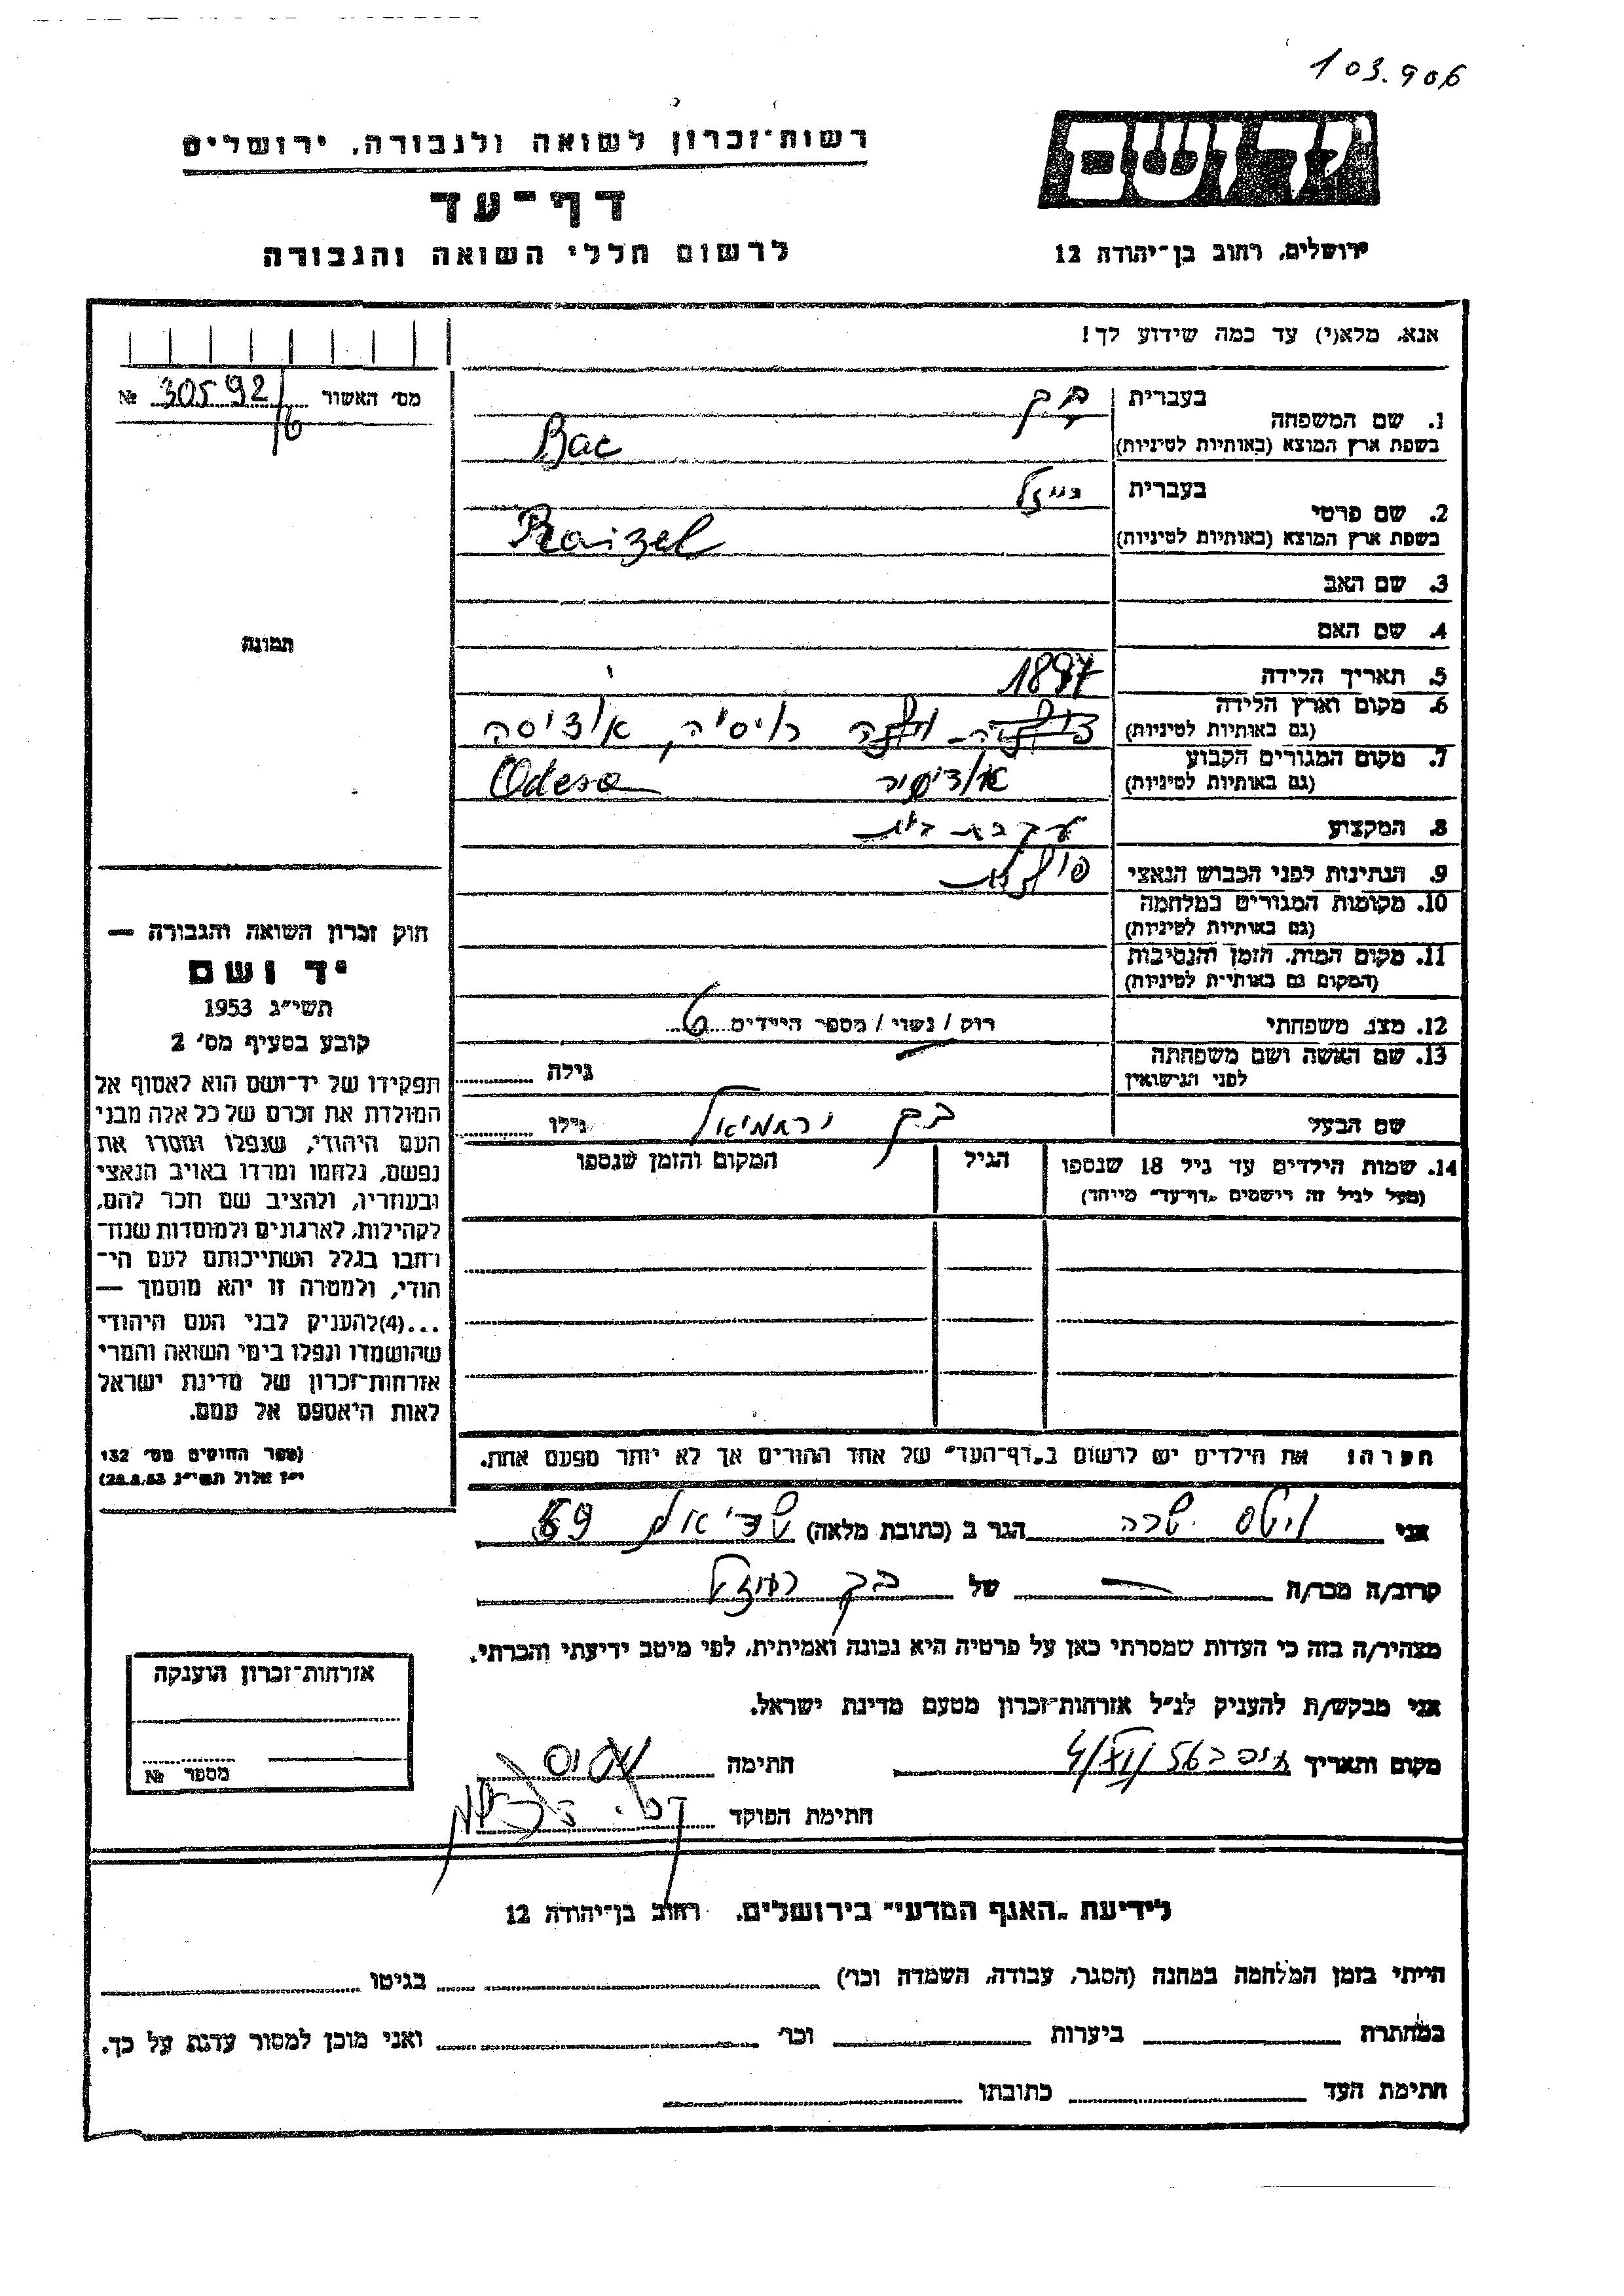 103.906
יד ושם
רשות־זכרון לשואה ולגבורה, ירושלים
דף־עד
לרשום חללי השואה והגבורה
ירושלים, רחוב בן־יהודה 12
אנא, מלא(י) עד כמה שידוע לך!
מס׳ האשור 30592/6 №
בעברית בק
1. שם המשפחה
בשפת ארץ המוצא (באותיות לטיניות) Bac
בעברית רייזל
2. שם פרטי
בשפת ארץ המוצא (באותיות לטיניות) Raizel
3. שם האב
4. שם האם
תמונה
5. תאריך הלידה 1897
6. מקום וארץ הלידה רוסיה, אודיסה
(גם באותיות לטיניות)
7. מקום המגורים הקבוע Odesa
(גם באותיות לטיניות)
8. המקצוע עקרת בית
9. הנתינות לפני הכבוש הנאצי
10. מקומות המגורים במלחמה
(גם באותיות לטיניות)
11. מקום המות, הזמן והנסיבות
(המקום גם באותיות לטיניות)
12. מצב משפחתי רוק / נשוי / מספר הילדים 6
13. שם האשה ושם משפחתה
לפני הנישואין גילה
שם הבעל בק ירחמיאל גילו
14. שמות הילדים עד גיל 18 שנספו הגיל המקום והזמן שנספו
(מעל לגיל זה רישמים „דף־עד״ מייחד)
חוק זכרון השואה והגבורה —
יד ושם
תשי״ג 1953
קובע בסעיף מס׳ 2
תפקידו של יד־ושם הוא לאסוף אל
המולדת את זכרם של כל אלה מבני
העם היהודי, שנפלו ומסרו את
נפשם, נלחמו ומרדו באויב הנאצי
ובעוזריו, ולהציב שם וזכר להם,
לקהילות, לארגונים ולמוסדות שנח־
רחבו בגלל השתייכותם לעם הי־
הודי, ולמטרה זו יהא מוסמך —
...(4)להעניק לבני העם היהודי
שהושמדו ונפלו בימי השואה והמרי
אזרחות־זכרון של מדינת ישראל
לאות היאספם אל עמם.
(ספר החוקים מס׳ 132
י״ז אלול תשי״ג 28.8.53)
הערה: את הילדים יש לרשום ב„דף־העד״ של אחד ההורים אך לא יותר מפעם אחת.
אני שרה הגר ב (כתובת מלאה) 69
קרוב/ה מכר/ה של בק רייזל
מצהיר/ה בזה כי העדות שמסרתי כאן על פרטיה היא נכונה ואמיתית, לפי מיטב ידיעתי והכרתי.
אני מבקש/ת להעניק לנ״ל אזרחות־זכרון מטעם מדינת ישראל.
מקום ותאריך חתימה
חתימת הפוקד
אזרחות־זכרון הוענקה
מספר №
לידיעת „האגף המדעי״ בירושלים, רחוב בן־יהודה 12
הייתי בזמן המלחמה במחנה (הסגר, עבודה, השמדה וכו׳) בגיטו
במחתרת ביערות וכו׳ ואני מוכן למסור עדות על כך.
חתימת העד כתובתו